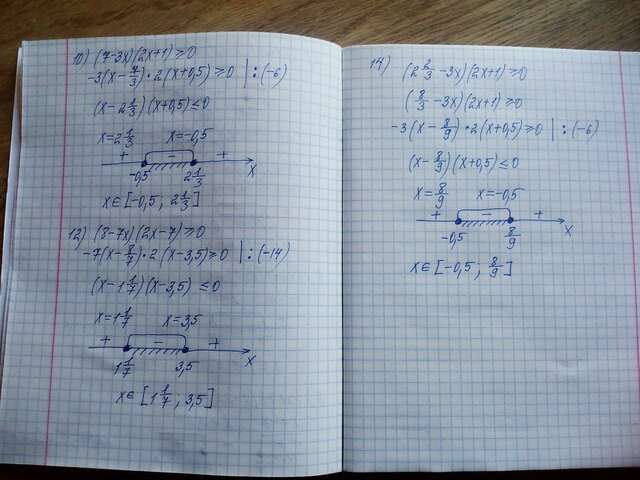 10) (7-3x)(2x+1)≥0
-3(x-7/3)·2(x+0,5)≥0 |:(-6)
(x-2 1/3)(x+0,5)≤0
x=2 1/3 x=-0,5
+ - +
-0,5 2 1/3 x
x∈[-0,5; 2 1/3]
12) (8-7x)(2x-7)≥0
-7(x-8/7)·2(x-3,5)≥0 |:(-14)
(x-1 1/7)(x-3,5)≤0
x=1 1/7 x=3,5
+ - +
1 1/7 3,5 x
x∈[1 1/7; 3,5]
14) (2 2/3-3x)(2x+1)≥0
(8/3-3x)(2x+1)≥0
-3(x-8/9)·2(x+0,5)≥0 |:(-6)
(x-8/9)(x+0,5)≤0
x=8/9 x=-0,5
+ - +
-0,5 8/9 x
x∈[-0,5; 8/9]